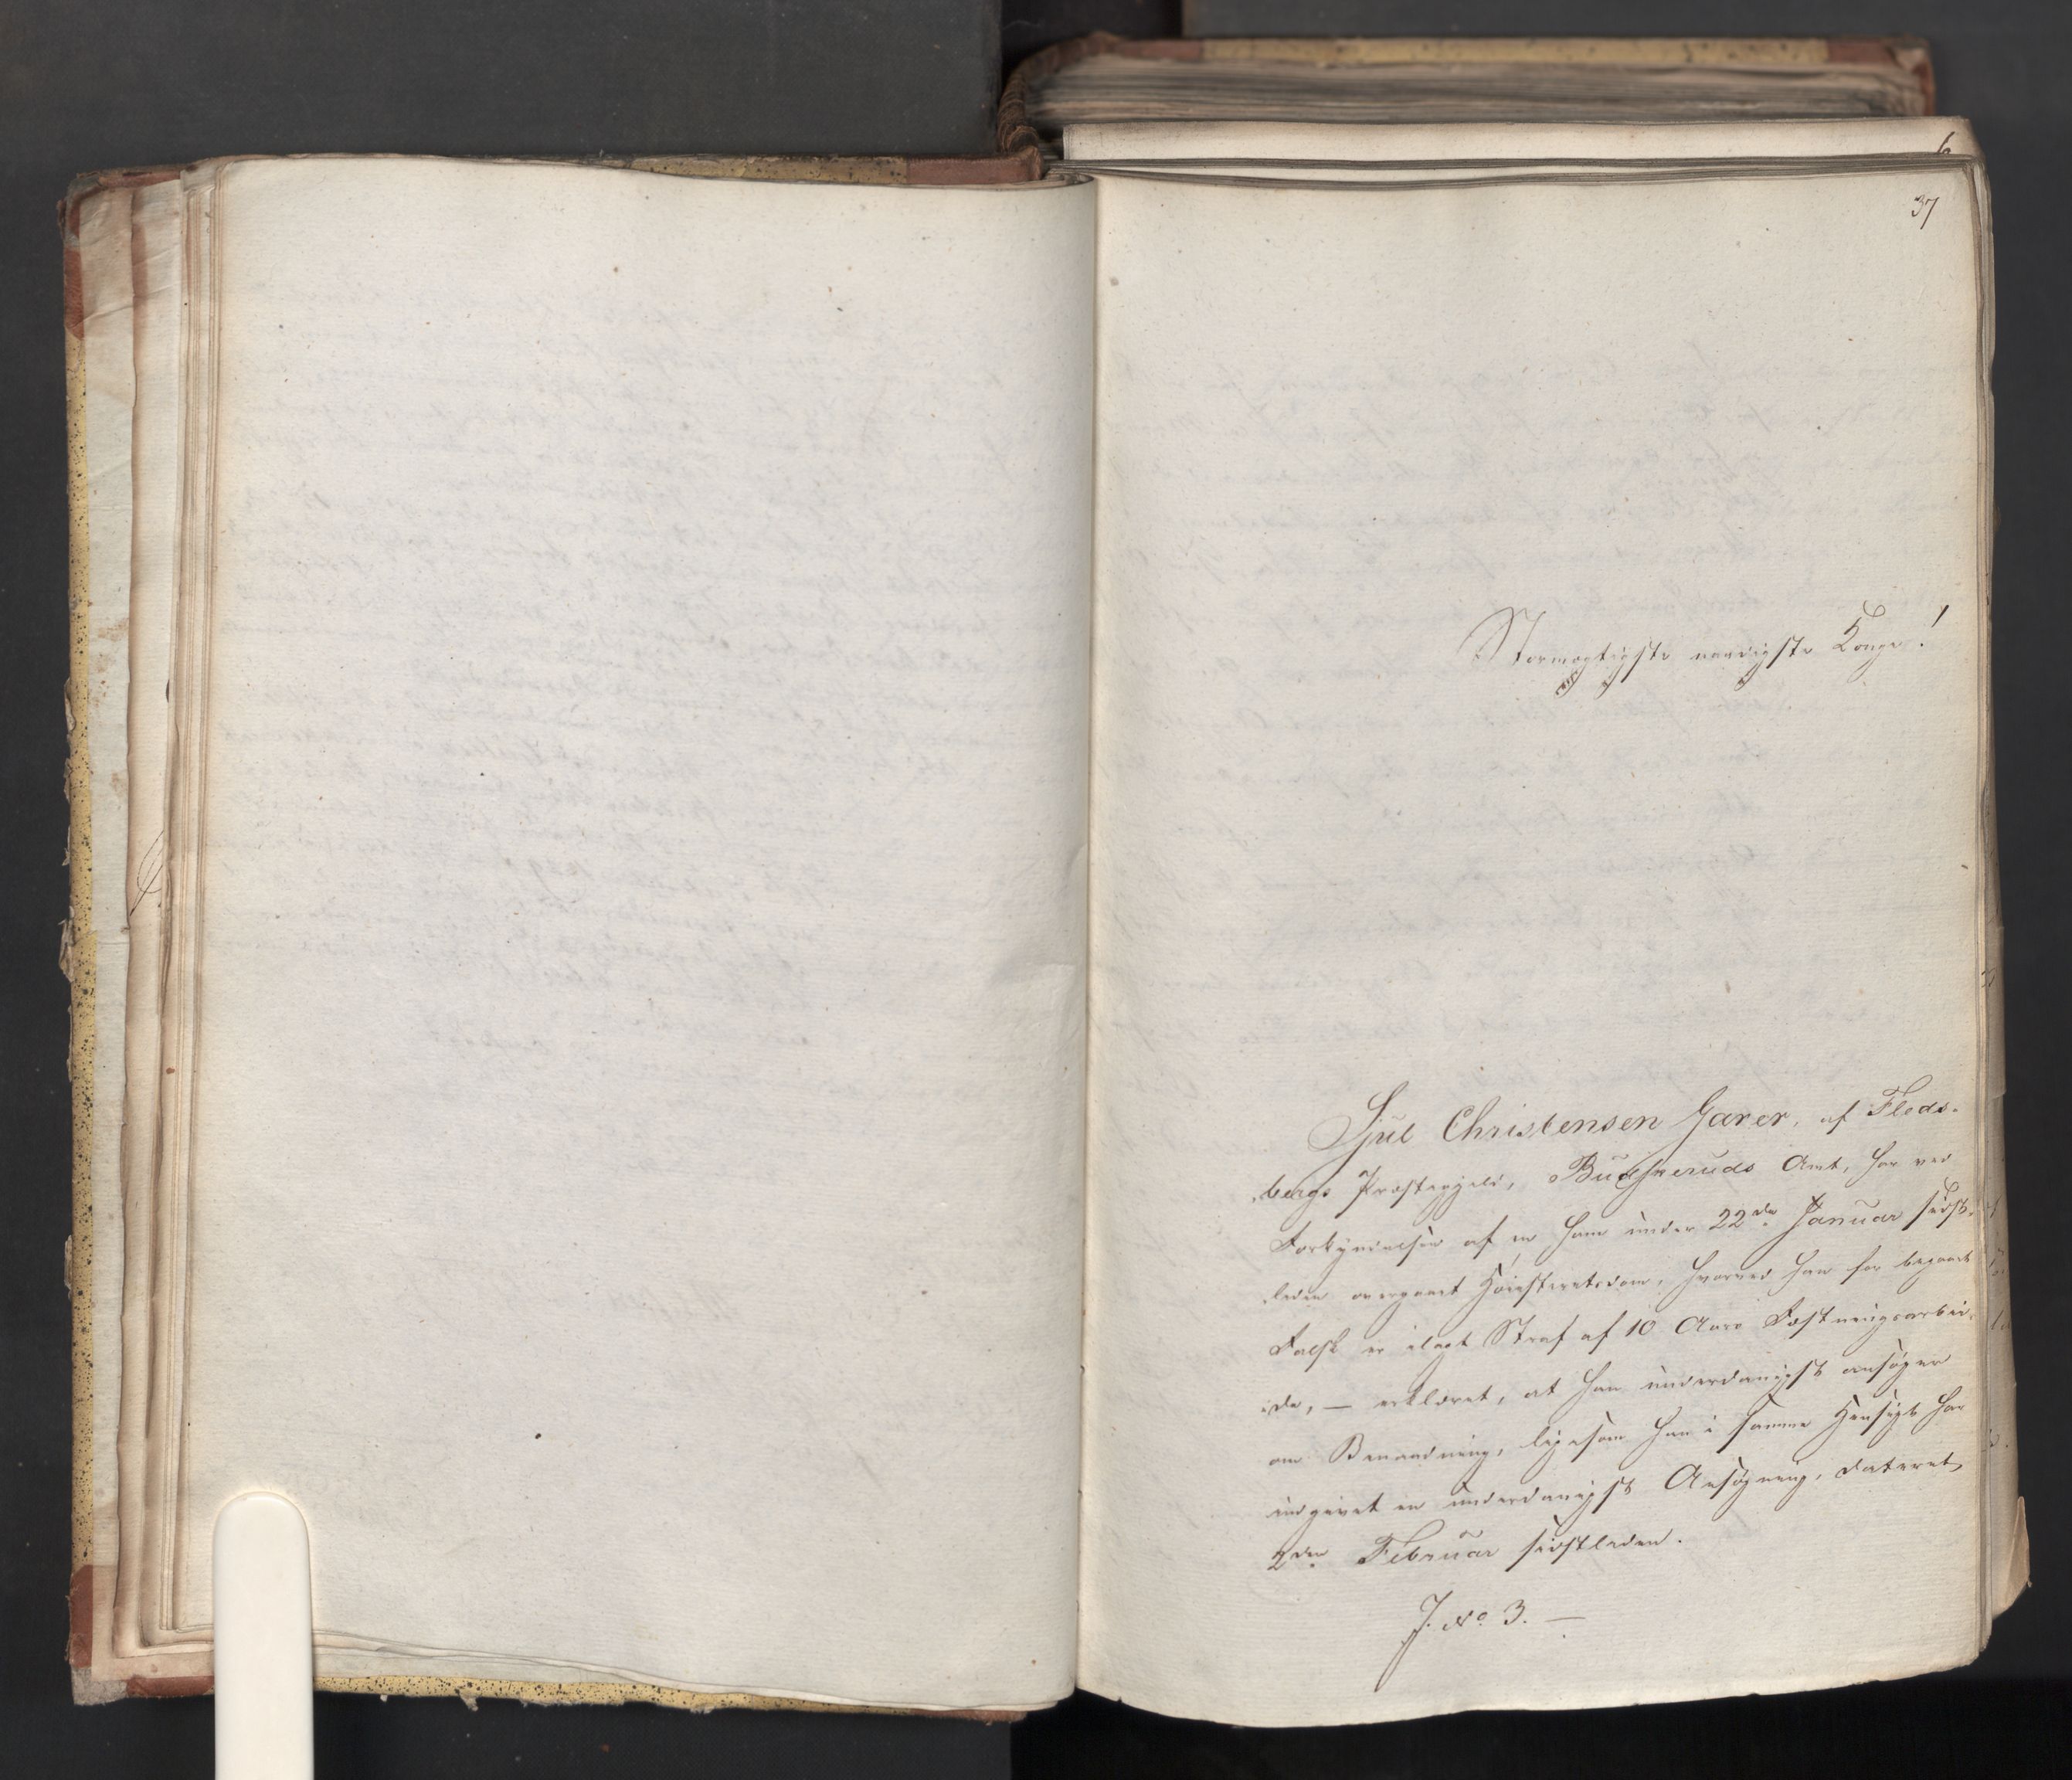 6
37
Stormægtigste naadigste Konge!
Sjul Christensen Garer, af Fleds-
bergs Præstegjeld, Budskeruds Amt, har ved
Forkyndelsen af en ham under 22de Januar sidst-
leden overgaaet Høiesteretsdom, hvorved han for begaaet
Falsk er ilagt Straf af 10 Aars Fæstningsarbei-
de, — erklæret, at han underdanigst ansøger
om Benaadning, ligesom han i samme Hensigt har
indgivet en underdanigst Ansøgning, dateret
2den Februar sidstleden.
J. No. 3. —